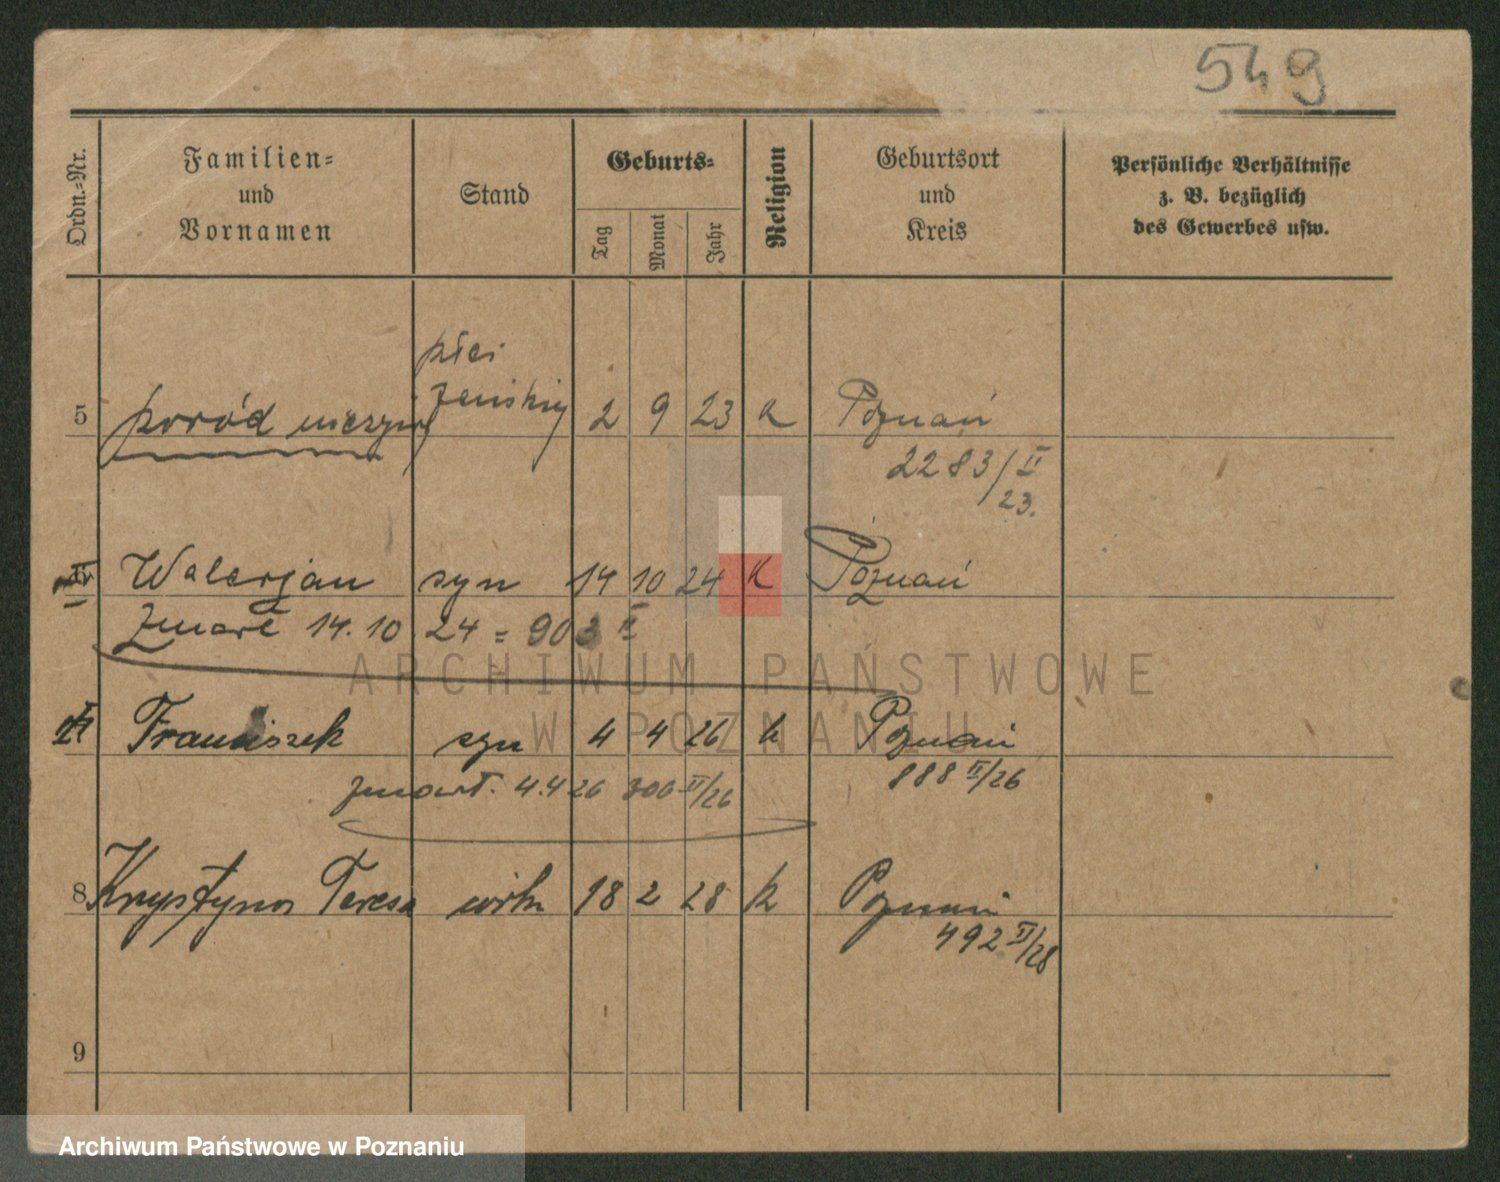 549
Ordn.=Nr.
Familien=
und
Vornamen
Stand
Geburts=
Tag
Monat
Jahr
Religion
Geburtsort
und
Kreis
Persönliche Verhältnisse
z. B. bezüglich
des Gewerbes usw.
płci
5 poród nieżyw żeńskiej 2 9 23 k Poznań
2283/II
23.
Walerjan syn 14 10 24 K Poznań
Zmarł 14.10 24 = 903 II
ARCHIWUM PAŃSTWOWE
W POZNANIU
Franciszek syn 4 4 26 k Poznań
888 II/26
zmarł. 4.4 26 300 II/26
8 Krystyna Teresa 18 2 28 k Poznań
492 II/28
9
Archiwum Państwowe w Poznaniu